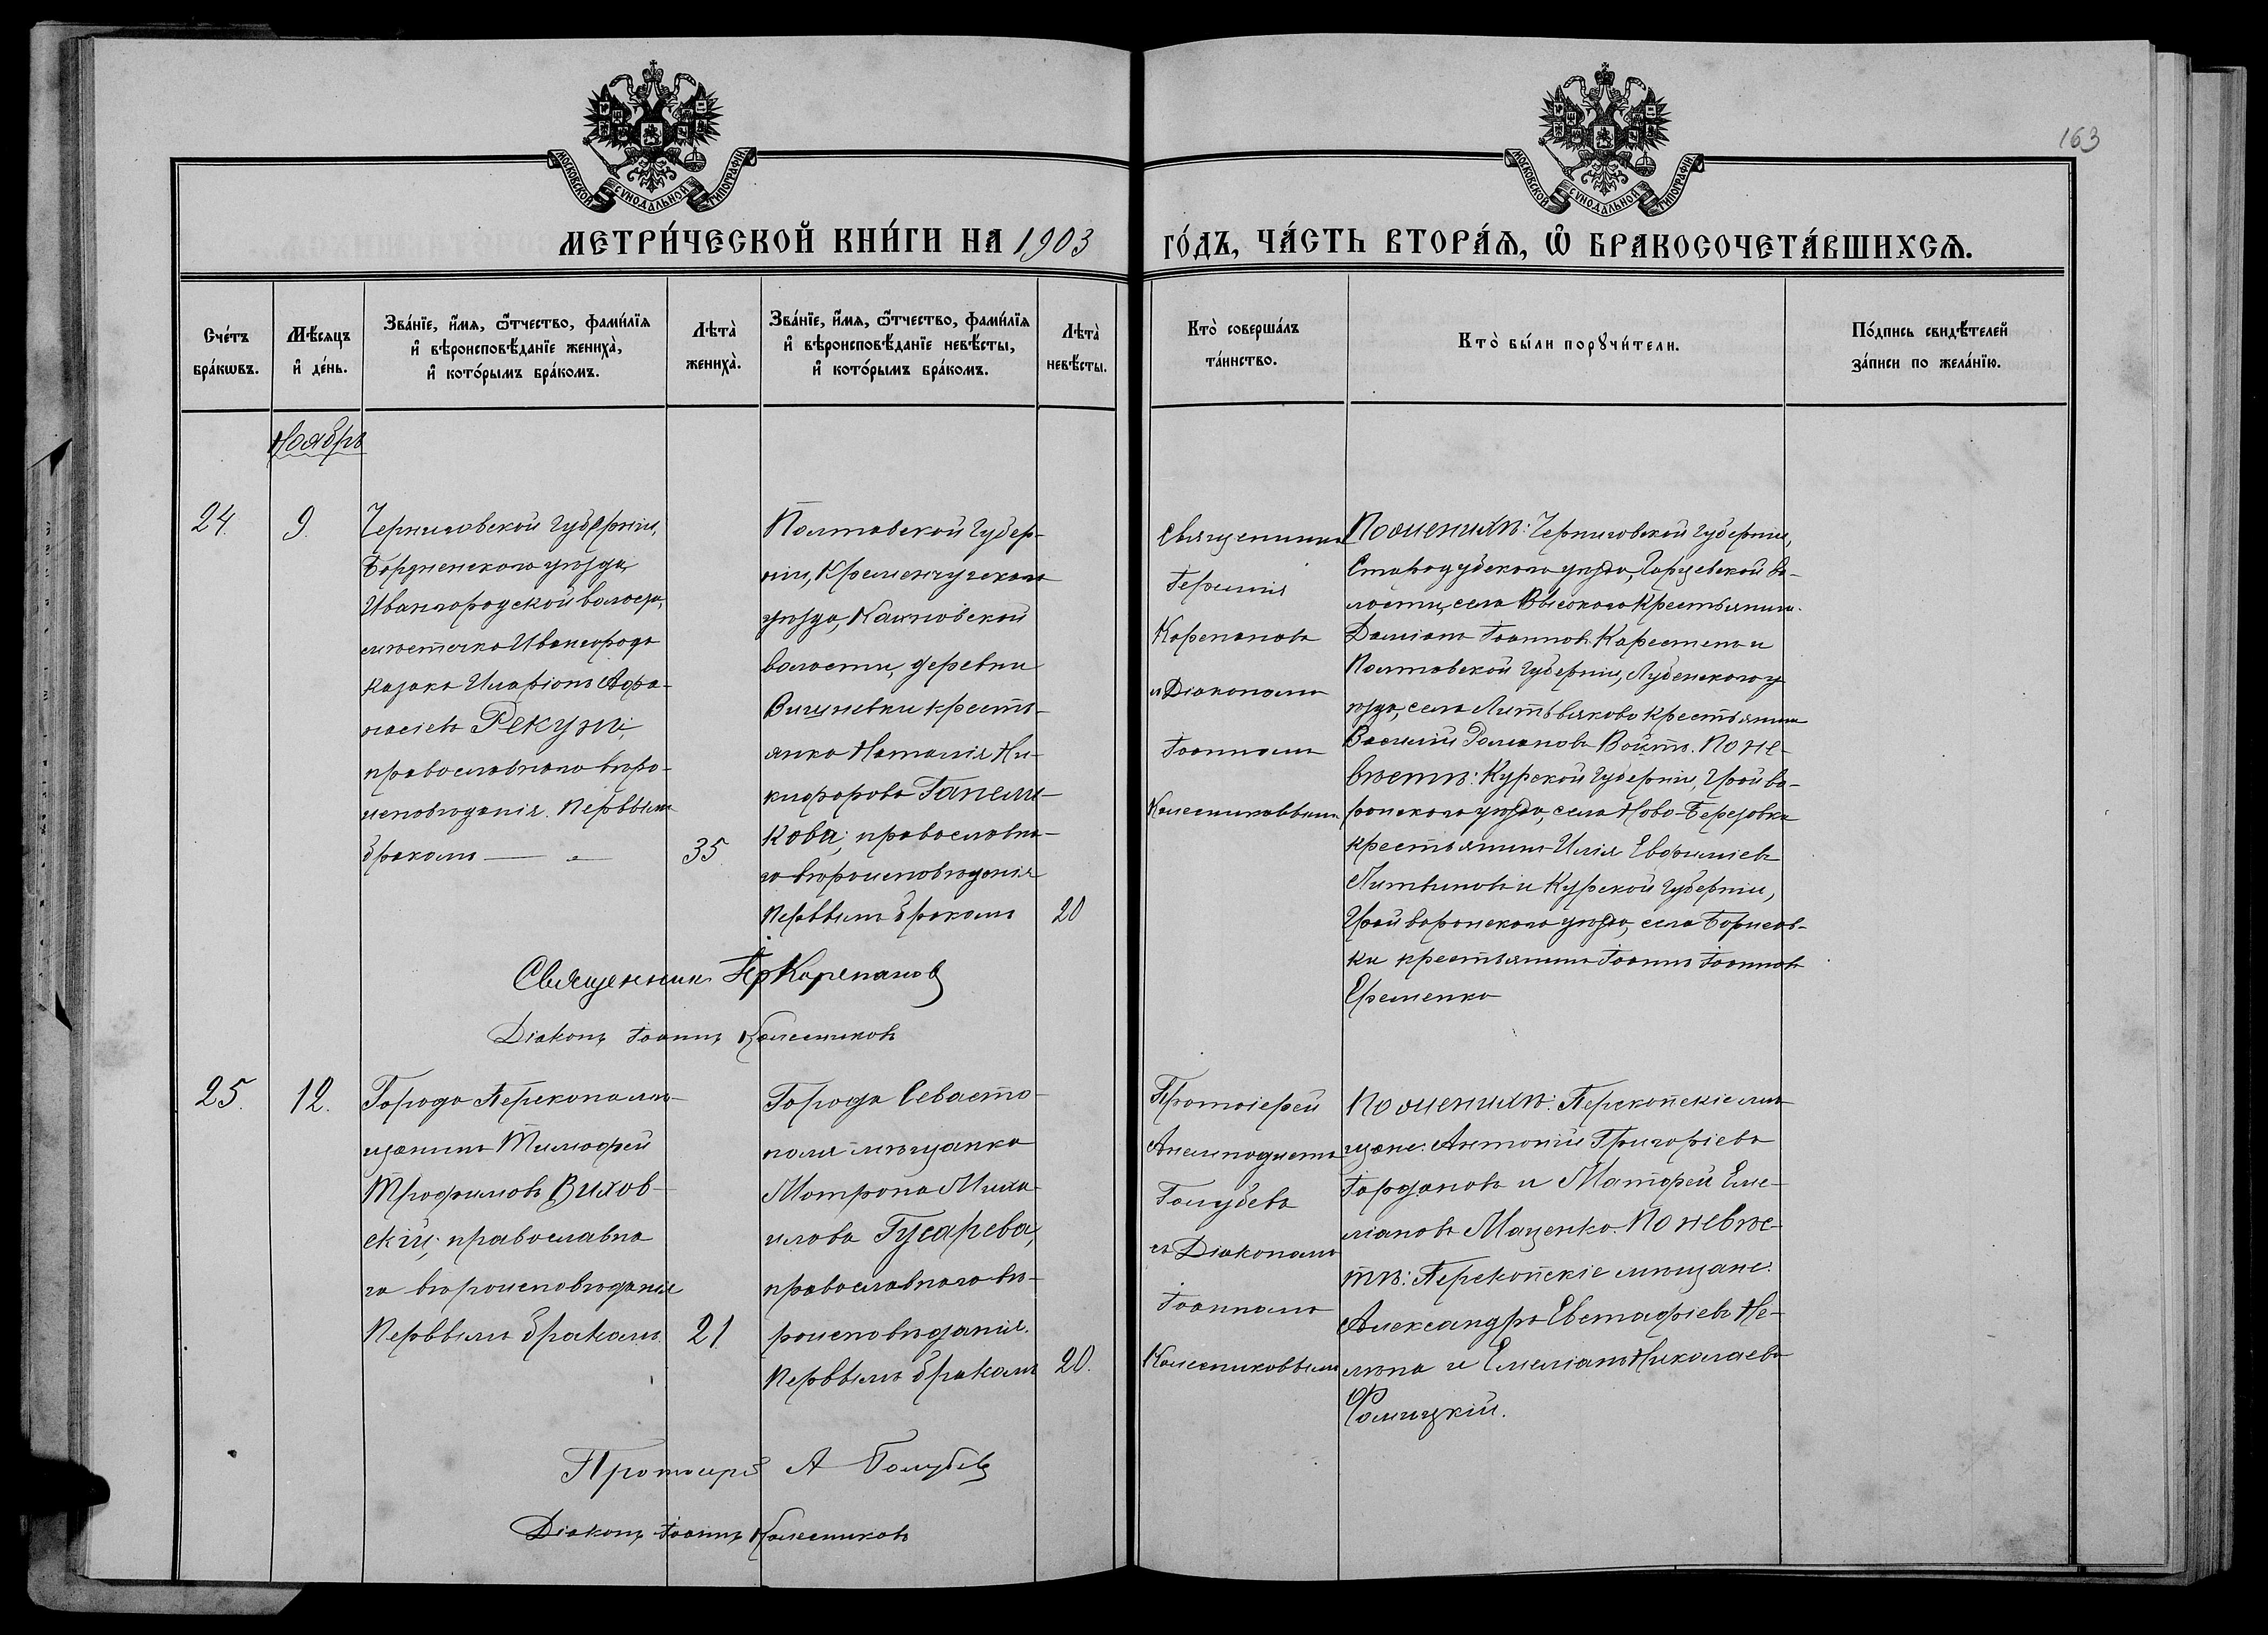 163
МОСКОВСКОЙ СѴНОДАЛЬНОЙ ТИПОГРАФІИ
МОСКОВСКОЙ СѴНОДАЛЬНОЙ ТИПОГРАФІИ
МЕТРИ́ЧЕСКОЙ КНИ́ГИ НА 1903 ГО́ДЪ, ЧА́СТЬ ВТОРА́Я, Ѡ҆ БРАКОСОЧЕТА́ВШИХСЯ.
Сче́тъ
бра́кѡвъ.
Мѣ́сяцъ
и҆ де́нь.
Зва́нїе, и҆́мя, ѻ҆́тчество, фами́лїя
и҆ вѣроисповѣ́данїе жениха̀,
и҆ кото́рымъ бра́комъ.
Лѣта̀
жениха̀.
Зва́нїе, и҆́мя, ѻ҆́тчество, фами́лїя
и҆ вѣроисповѣ́данїе невѣ́сты,
и҆ кото́рымъ бра́комъ.
Лѣта̀
невѣ́сты.
Кто̀ соверша́лъ
та́инство.
Кто̀ бы́ли порꙋчи́тели.
По́дпись свидѣ́телей
за́писи по жела́нїю.
Ноябрь
24.
9.
Черниговской губерніи,
Борзненскаго уѣзда,
Ивангородской волости,
мѣстечка Ивангорода
казакъ Иларіонъ Афа-
насіевъ Рекунъ,
православнаго вѣро-
исповѣданія. Первымъ
бракомъ — „ —
35.
Полтавской губер-
ніи, Кременчугскаго
уѣзда,
волости, деревни
кресть-
янка Наталія Ни-
кифорова Ганени-
кова; православна-
го вѣроисповѣданія
Первымъ бракомъ
20
Священникъ
Корепановъ
съ Діакономъ
Іоанномъ
Колесниковымъ
По женихѣ: Черниговской губерніи,
Стародубскаго уѣзда, во-
лости, села Высокаго крестьянинъ
Даміанъ Іоанновъ и
Полтавской губерніи, Лубенскаго у-
ѣзда, села Литвяково крестьянинъ
Василій Романовъ Войтъ. По не-
вѣстѣ: Курской губерніи, Грайво-
ронскаго уѣзда, села Ново-Березовки
крестьянинъ Илія Евфиміевъ
Литвиновъ и Курской губерніи,
Грайворонскаго уѣзда, села Борисов-
ки крестьянинъ Іоаннъ Іоанновъ
Еременко
Священникъ Корепановъ
Діаконъ Іоаннъ Колесниковъ
25.
12.
Города Перекопа мѣ-
щанинъ Тимофей
Трофимовъ Вихов-
скій; православна
го вѣроисповѣданія
Первымъ бракомъ.
21.
Города Севасто-
поля мѣщанка
Матрона Миха-
илова Гусарева,
православнаго вѣ-
роисповѣданія.
Первымъ бракомъ
20.
Протоіерей
Анемподистъ
Голубевъ
съ Діакономъ
Іоанномъ
Колесниковымъ
По женихѣ: Перекопскіе мѣ-
щане: Антоній Григоріевъ
Іордановъ и Матфей Еме-
ліановъ Маценко. По невѣс-
тѣ: Перекопскіе мѣщане:
Александръ Евстафіевъ Не-
и Емеліанъ Николаевъ
Протоіерей А Голубевъ
Діаконъ Іоаннъ Колесниковъ